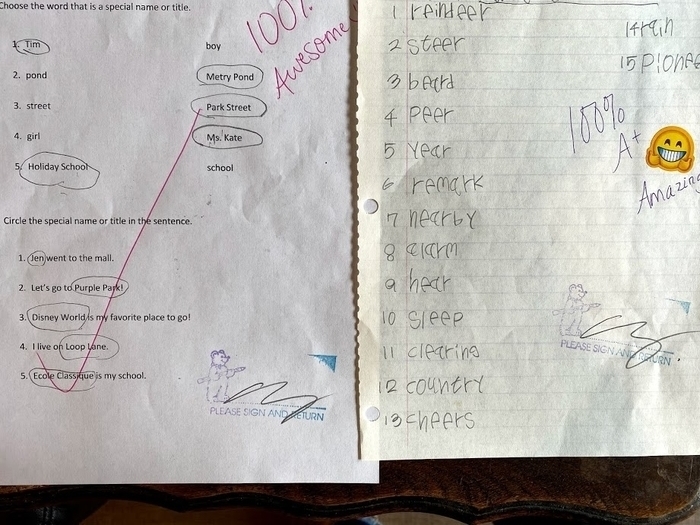 Choose the word that is a special name or title.
100%
Awesome!
1. Tim boy
2. pond Metry Pond
3. street Park Street
4. girl Ms. Kate
5. Holiday School school
Circle the special name or title in the sentence.
1. Jen went to the mall.
2. Let's go to Purple Park!
3. Disney World is my favorite place to go!
4. I live on Loop Lane.
5. Ecole Classique is my school.
PLEASE SIGN AND RETURN
1 reindeer
2 steer
3 beard
4 peer
5 year
6 remark
7 nearby
8 alarm
9 hear
10 sleep
11 clearing
12 country
13 cheers
14 rain
15 pionee
100%
A+
Amazing
PLEASE SIGN AND RETURN